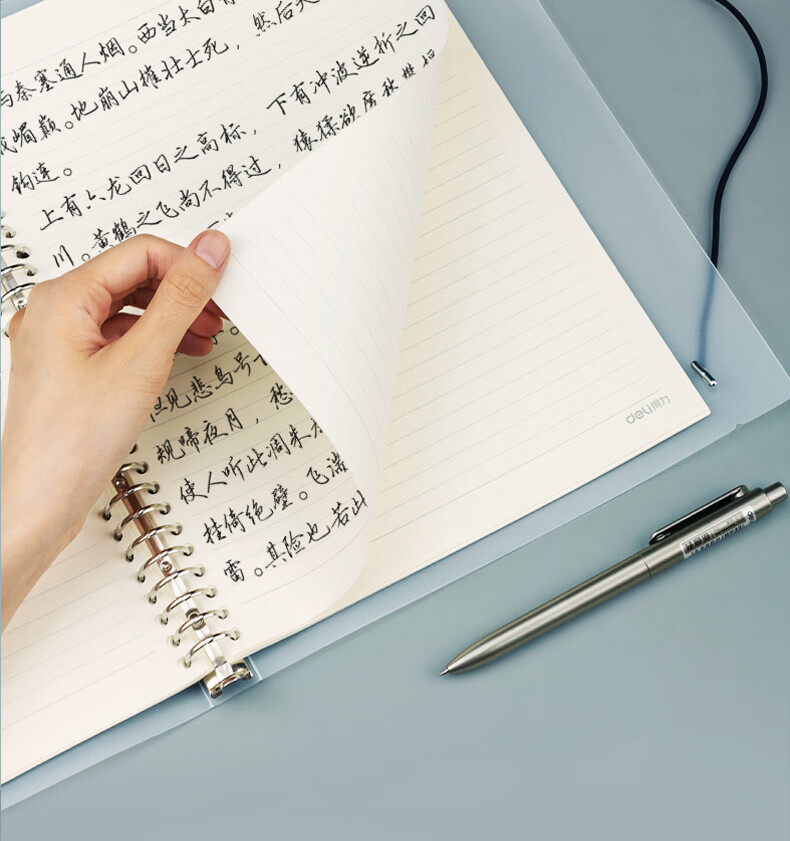 与秦塞通人烟。西当太白有
峨嵋巅。地崩山摧壮士死，然后天
钩连。
上有六龙回日之高标，下有冲波逆折之回
川。黄鹤之飞尚不得过，猿猱欲度愁攀
但见悲鸟号古
规啼夜月，愁
使人听此凋朱
挂倚绝壁。飞湍
雷。其险也若此
deli得力